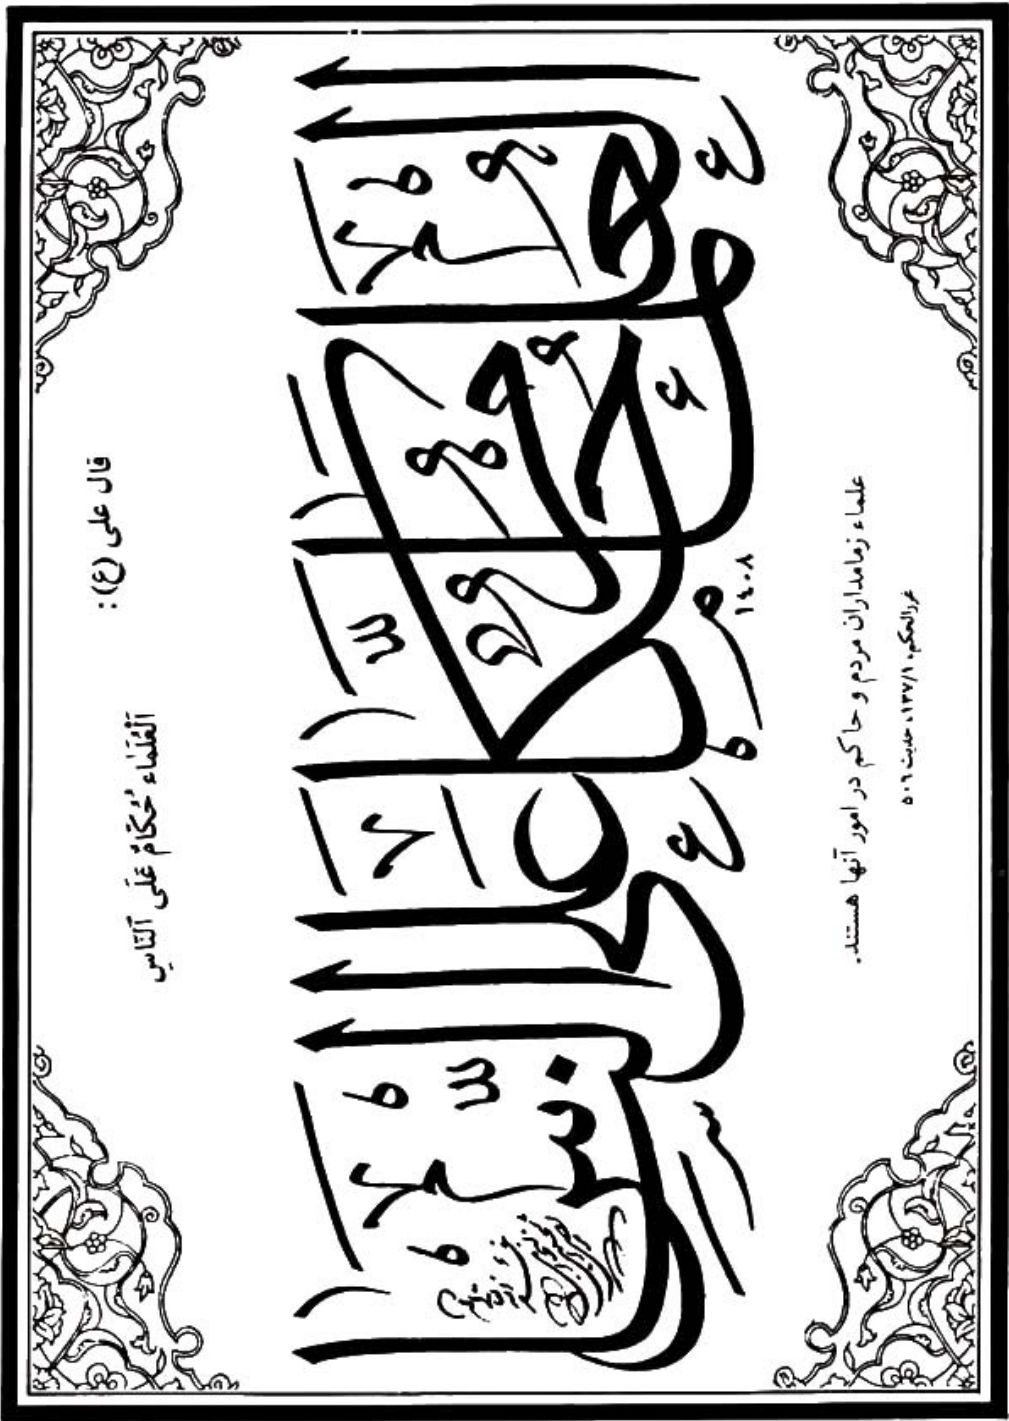 قال علی (ع):
اَلْعُلَمٰاء حُكّامٌ عَلَى اَلنّاسِ
العلماء حكام على الناس
۱٤۰۸
علماء زمامداران مردم و حاکم در امور آنها هستند.
غررالحکم، ۱۳۷/۱، حدیث ۵۰٦